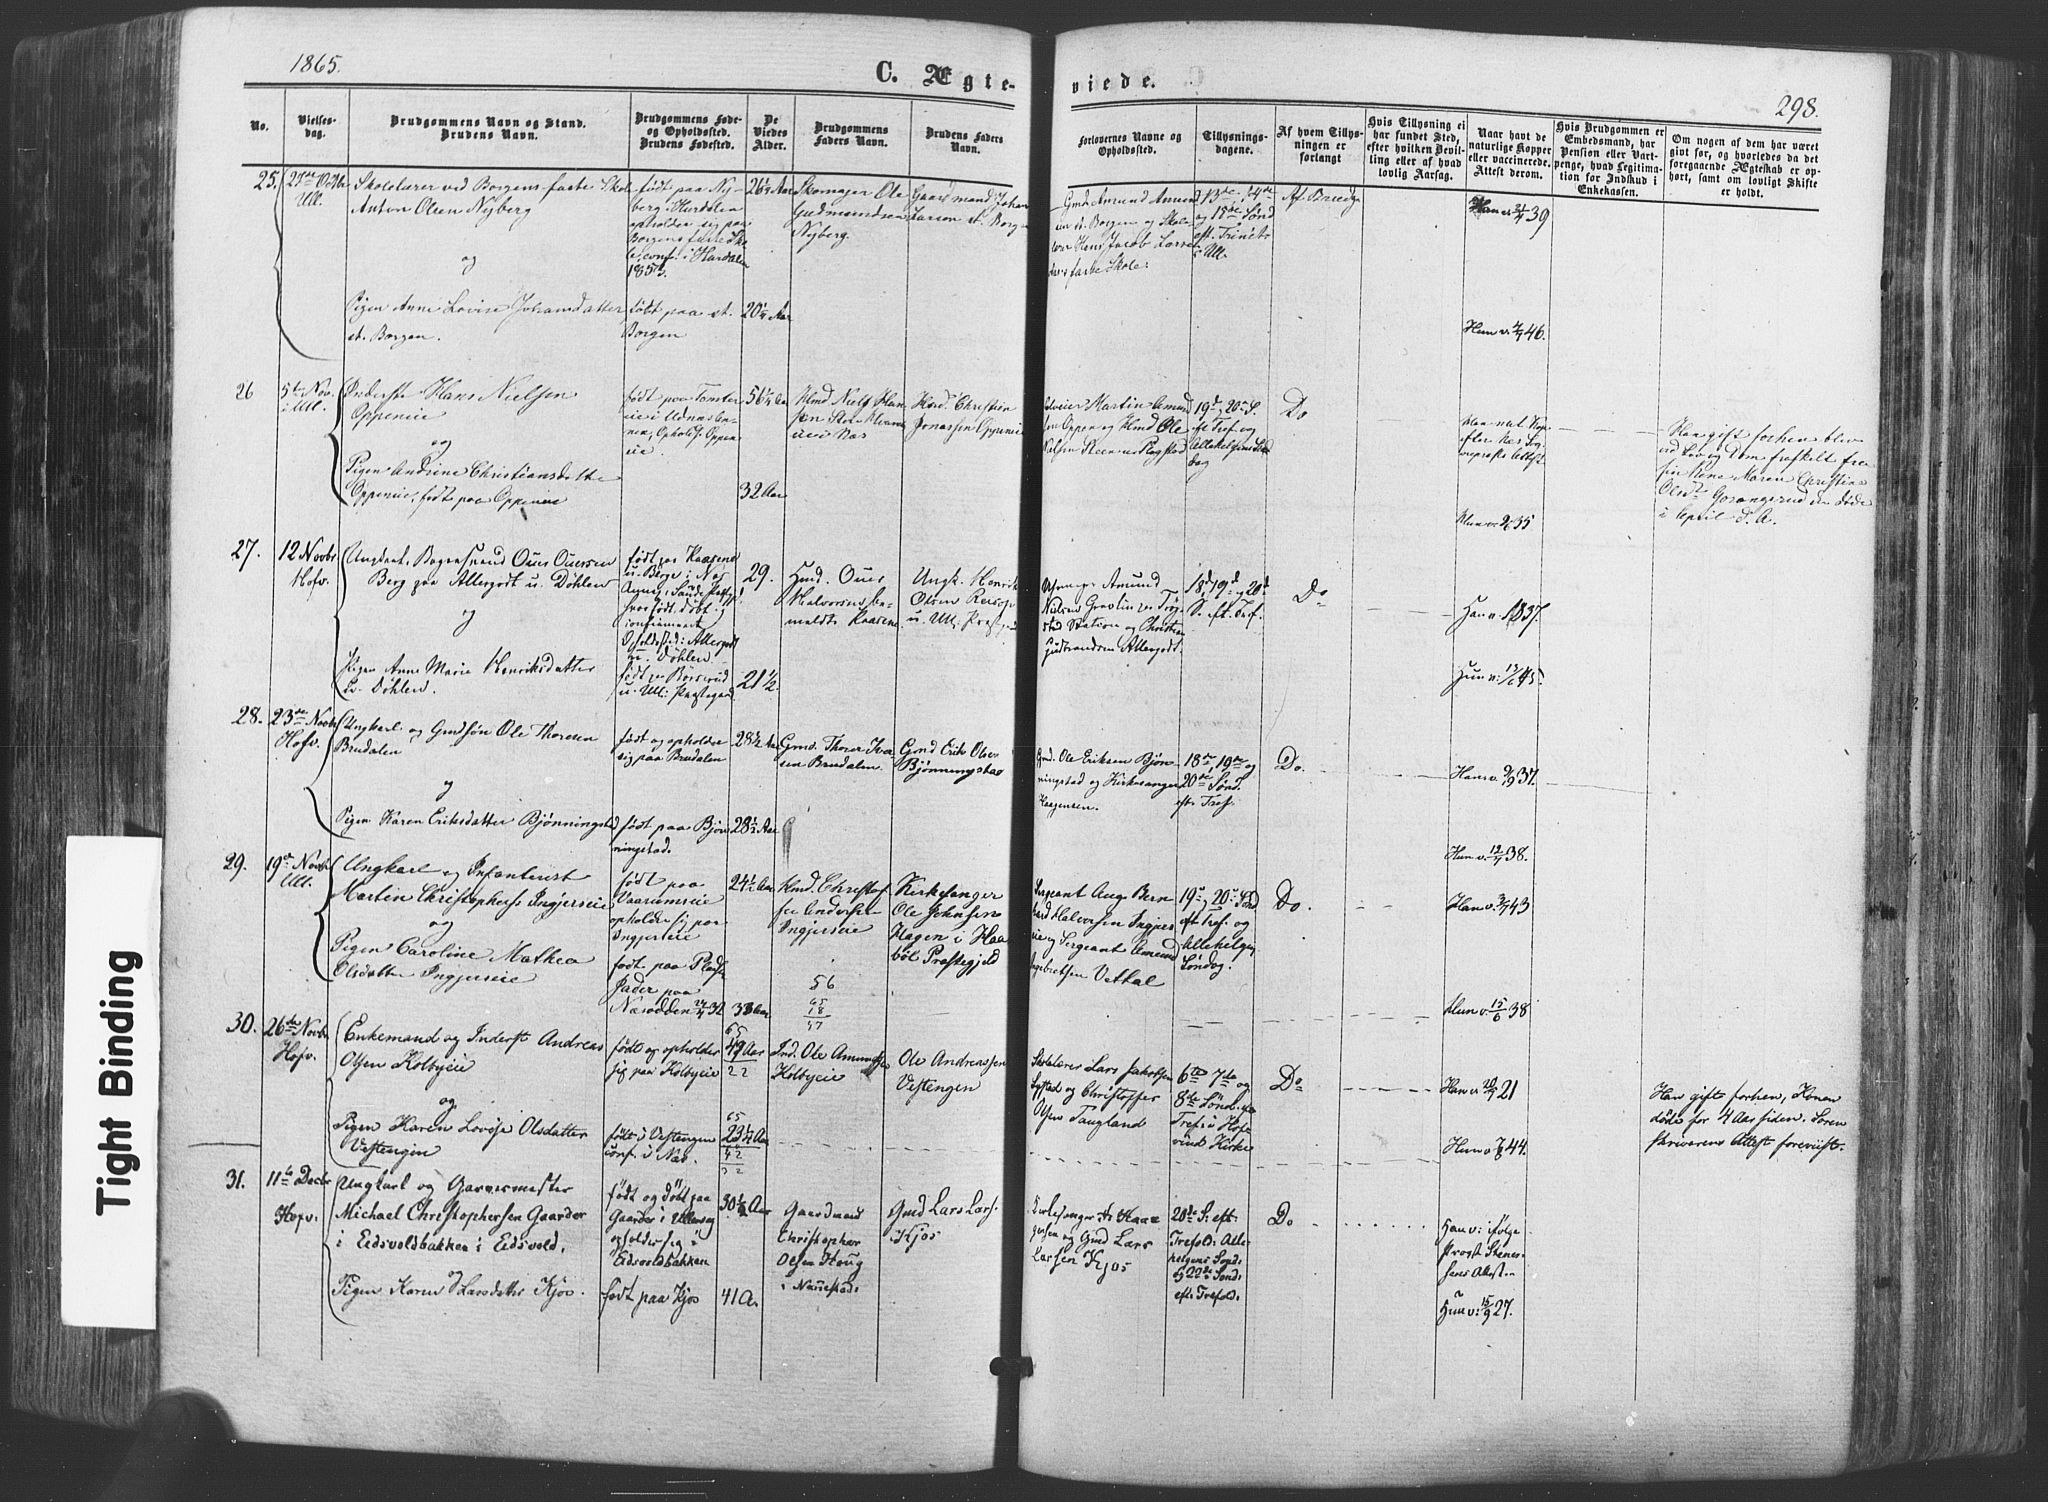 1865.
C. Ægte-
viede.
298.
No.
Vielses-
dag.
Brudgommens Navn og Stand.
Brudens Navn.
Brudgommens Føde-
og Opholdssted.
Brudens Fødested.
De
Viedes
Alder.
Brudgommens
Faders Navn.
Brudens Faders
Navn.
Forlovernes Navne og
Opholdssted.
Tillysnings-
dagene.
Af hvem Tillys-
ningen er
forlangt
Hvis Tillysning ei
har fundet Sted,
efter hvilken Bevil-
ling eller af hvad
lovlig Aarsag.
Naar havt de
naturlige Kopper
eller vaccinerede.
Attest derom.
Hvis Brudgommen er
Embedsmand, har
Pension eller Vart-
penge, hvad Legitima-
tion for Indskud i
Enkekassen.
Om nogen af dem har været
gift før, og hvorledes da det
foregaaende Ægteskab er op-
hørt, samt om lovligt Skifte
er holdt.
25.
Ull.
Skolelærer ved Borgens faste Skole
Anton Olsen Nyberg
og
Pigen Anne Lovise Johansdatter
st. Borgen.
født paa Ny-
berg i Hurdalen
opholder sig paa
Borgens faste Sko-
le, conf. i Hurdalen
1853.
født paa st.
Borgen
26½ Aar
20¼ Aar
Skomager Ole
Gudmundsen
Nyberg.
Gaardmand Johan
Larsen st. Borgen
Gmd. Amund Amund-
sen st. Borgen og Skole-
lærer Hans Jacob Larsen
faste Skole.
13de, 14de
og 15de Sønd
eft. Trinit.
i Ull.
Af Brudg.
39
Hun v. 46.
26
5te Nov.
i Ull.
Inderste Hans Nielsen
Oppeneie
og
Pigen Andrine Christiansdatter
Oppeneie, født paa Oppeneie
født paa Tomter-
eie i Udnæs An-
nex, Opholdss. Oppen-
eie.
56½ Aar
32 Aar
Hmd Niels Han-
sen
Næs
Hmd. Christian
Jonassen Oppeneie
Martin Amund-
sen Oppen og Hmd Ole
Nielsen Steen Ragstad
19d, 20de S.
eft Tref. og
Allehelgens Søn-
dag
Do
Han nat. Kop.
efter Næs Sog-
nepræsts Attest
Hun v. 35
Han gift forhen blev
ved Lov og Dom fraskilt fra
sin Kone Maren Christine
Olsdr. Gorangerud der døde
i April d. A.
27.
12 Novbr
Hofv.
Ungkarl, Bagersvend Oues Ouesen
Berg paa Allergodt u. Døhlen
og
Pigen Anne Marie Henriksdatter
Ev. Døhlen.
født paa Kaasene
u. Berge i Næs
Annex, Sande Præstgjd.
hvor født, døbt og
confirmeret
Opholdssted: Allergodt
u. Døhlen.
født paa Børserud
u. Ull: Præstegaard
29.
21½
Hmd. Oues
Halvorsen
Kaasene
Ungk. Henrik
Olsen
u. Ull: Præstgd
Amund
Nielsen Gravlin ved Trøg-
stad Station og Christian
Gudbrandsen Allergodt.
18d, 19d og 20d
S. eft. Tref.
Do
Han v. 1837.
Hun v. 45.
28.
23de Novbr
Hofv.
Ungkarl og Gmdsøn Ole Thoresen
Brudalen
og
Pigen Karen Eriksdatter Bjønningstad
født og opholder
sig paa Brudalen
født paa Bjøn-
ningstad.
28½ Aar
28½ Aar
Gmd. Thorer Iver-
sen Brudalen.
Gmd Erik Olsen
Bjønningstad
Gmd. Ole Eriksen Bjøn-
ningstad og Kirkesanger
Haagensen.
18de, 19de og
20de Sønd.
eft. Tref.
Do.
Han v. 37.
Hun v. 12/7 38.
29.
19de Novbr
Ull.
Ungkarl og Infanterist
Martin Christophersen Ingjerseie
og
Pigen Caroline Mathea
Olsdatter Ingjerseie
født paa
Vaarumseie
opholder sig paa
Ingjerseie
født paa Pladsen
Jader paa
Næsodden 32
24½ Aar
33 Aar
Hmd. Christof-
fer Andersen
Ingjerseie
56
65
18
47
Kirkesanger
Ole Johnsen
Hagen i Haa-
bøl Præstegjeld
Sergeant Aug. Bern-
hard Halvorsen Ingjers-
eie og Sergeant Amund
Ingebretsen Vethal
19d og 20de Sønd
eft Tref. og
Allehelgens
Søndag.
Do.
Han v. 43
Hun v. 15/6 38
30.
26de Novbr
Hofv.
Enkemand og Inderst Andreas
Olsen Kolbyeie
og
Pigen Karen Lovise Olsdatter
Vestengen
født og opholder
sig paa Kolbyeie
født i Vestengen
conf. i Næs.
65
43 Aar
22
65
23½ Aar
42
Ind. Ole Amundsen
Kolbyeie
Ole Andreassen
Vestengen
Skolelærer Lars Jakobsen
Lystad og Christoffer
Olsen Taugland
6te 7de og
8de Sønd. eft
Tref. i Hof-
vind Kirke
Do
Han v. 21
Hun v. 44.
Han gift forhen, Konen
døde for 4 Aar siden. Soren-
skriverens Attest foreviist.
31.
11te Decbr
Hofv.
Ungkarl og Garvermester
Michael Christophersen Gaarder
i Eidsvoldbakken i Eidsvold,
og
Pigen Karen Larsdatter Kjos.
født og døbt paa
Gaarder i Ullensag
opholder sig i
Eidsvoldbakken
født paa Kjos
30½ Aar
41 A.
Gaardmand
Christopher
Olsen Houg
i Nannestad.
Gmd Lars Lars.
Kjos
Kirkesanger H. Haa-
gensen og Gmd Lars
Larsen Kjos
20de S. eft.
Trefold. Alle-
helgens Sønd.
og 22de Sønd.
eft. Trefold.
Do
Han v: ifølge
Provst Stenes-
sens Attest
Hun v: 15/9 27.
Tight Binding